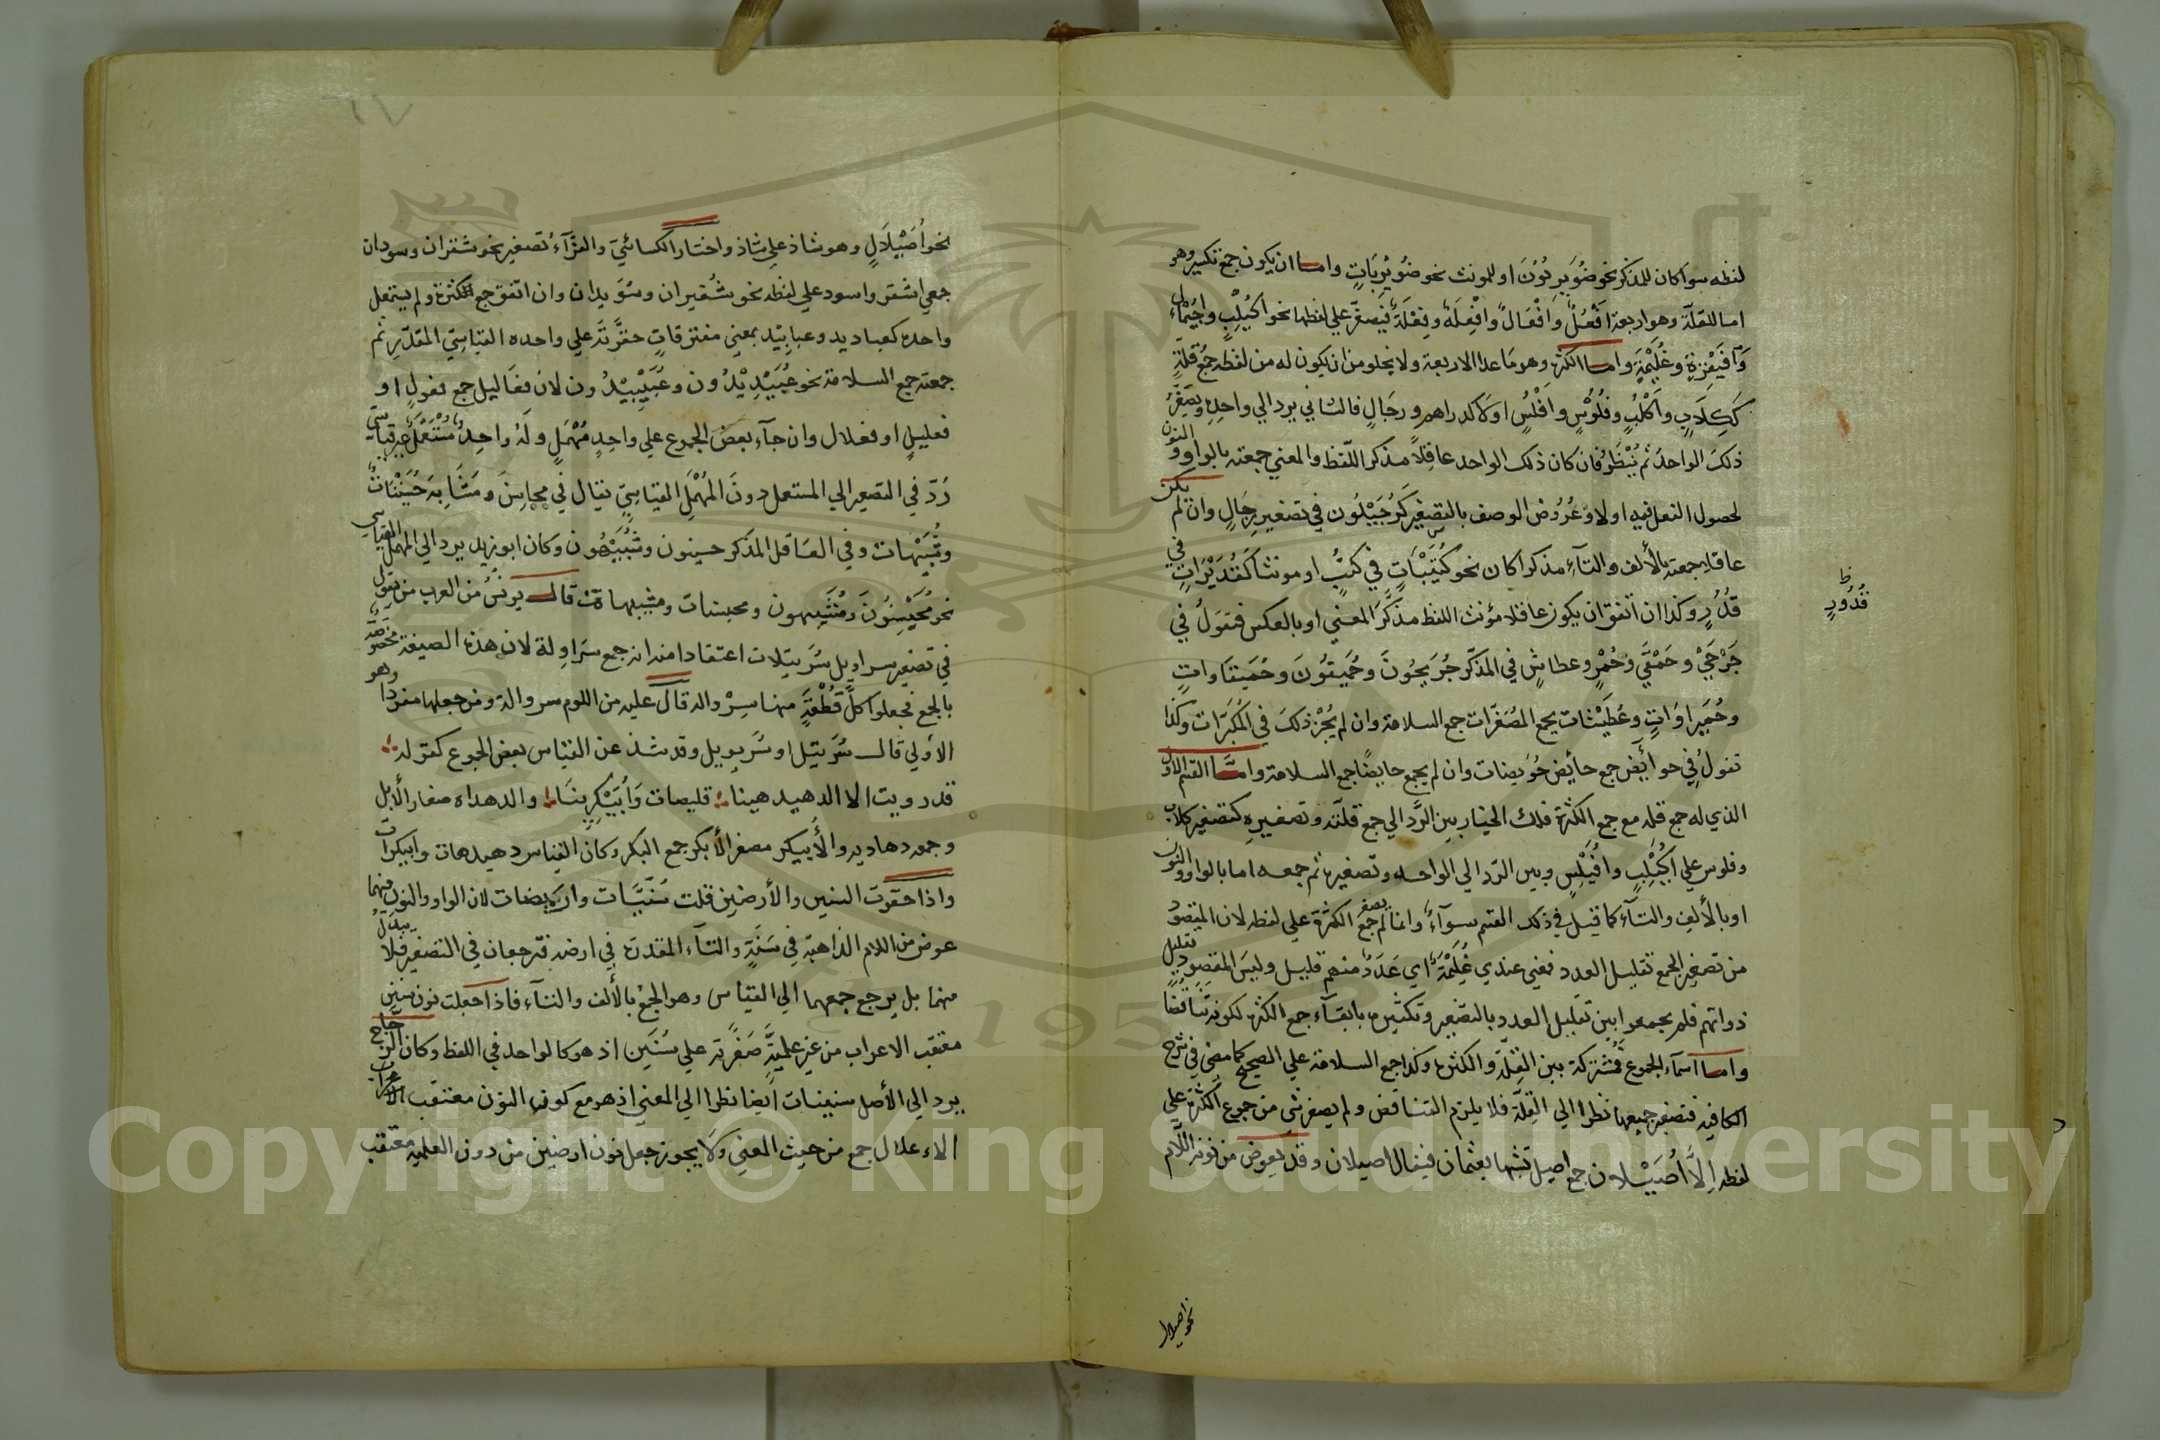 لفظه سوا كان للمذكر نحو ضُوَيرِبُوْنَ او للمونث نحو ضُوَيْرِبَاتٍ واما ان يكون جمع تكسير وهو
اما للقلّة وهو اربعة اَفْعُلٌ وَاَفْعَالٌ وَاَفْعِلَةٌ وفِعْلَةٌ فيصغّر علي لفظها نحو اُكَيْلِبٍ واُجَيْمَالٍ
وَاُقَيْفِزَةٍ وغُلَيْمَةٍ واما الكثرة وهو ما عدا الاربعة ولا يخلو من ان يكون له من لفظه جمع قلةٍ
كَكِلَابٍ واَكْلُبٍ وفُلُوْسٍ واَفْلُسٍ اولا كدراهم ورجَالٍ فالثاني يرد الي واحدِهِ ويصَغّرُ
ذلكَ الواحدُ ثم يُنْظَرُ فان كان ذلك الواحد عاقِلاً مذكر اللّفظ والمعني جمعته بالواو والنون
لحصول النعل فيه اولا وعُرُوض الوصف بالتصغير كَرُجَيْلُون في تصغير رِجَالٍ وان لم يكن
عاقلا جمعته بالألف والتآءِ مذكرا كان نحو كُتَيِّبَاتٍ في كتبٍ او مونثا كقُدَيْرَاتٍ في
قُدُرٍ وكذا ان اتفق ان يكون عاقلا مؤنث اللفظ مذكَّرَ المعني او بالعكس فتقولُ في
جَرْحَيْ وحَمْقَي وحُمْرٍ وعطاشٍ في المذكّر جُرَيحُونَ وحُمَيقُونَ وحُمَيقَاواتٍ
وحُمَيراوَاتٍ وعُطَيْشات بجمع المصَغّرات جمع السلامة وان لم يجُزْ ذلكَ في المُكبَّرَات وكذا
تقولُ في حوائض جمع حائض حُوَيضات وان لم يجمع حايضًا جمع السلامة وامّا القسم الاول
الذي له جمع قله مع جمع الكثرة فلك الخيار بين الرَّد الي جمع قلّته وتصغيرِهِ كتصغير كلاب
وفلوس علي اُكَيْلِبٍ واُفَيْلِسٍ وبين الرّد الي الواحد وتصغيره ثم جمعه اما بالواو والنون
او بالألفِ والتآء كما قيل في ذلك القسم سوآءٌ وانما لم يصغر جمع الكثرة علي لفظه لان المقصود
من تصغير الجمع تقليل العدد فمعني عندي غُلَيْمَةٌ اي عَدَدٌ منهم قليل وليسَ المقصود تقليل
ذواتهم فلم يجمعوا بين تقليل العدد بالتصغير وتكثيره بابقآء جمع الكثره لكونه تناقضًا
واما اسمآء الجموع فمشتركة بين القلّة والكثره وكذا جمع السلامة علي الصحيح كما مضي في شرح
الكافيه فتصغير جميعها نظرا الي القِلّة فلا يلزم التناقض ولم يصغر شي من جموع الكثرة علي
لفظه اِلّا اُصَيْلان جمع اصيل تشبها بعثمان فيقال اصيلان وقد يعوض من نونه اللام
قُدُورٍ
نحو اصيلال
نحو اُصَيْلَالٍ وهو شاذ علي شاذ واختار الكسائيّ والفرّآءُ تصغير نحو شقران وسودان
جمعي اشقر واسود علي لفظه نحو شُقيران وسُوَيدان وان اتفق جمع الكثرة ولم يستعمل
واحده كعباديد وعبابِيْد بمعني متفرقاتٍ حقّرته علي واحده القياسيّ المقدّر ثم
جمعته جمع السلامة نحو عُبَيْدِيْدُون وعُبَيْبِيْدُون لان فعَاليل جمع فعولٍ او
فعليلٍ او فعلال وان جآء بعض الجموع علي واحِدٍ مُهْمَلٍ ولهُ واحِدٌ مُسْتَعْمَلٌ غير قياسيّ
رُدّ في التصغير الي المستعمل دونَ المُهْمَلِ القياسِيّ يقال في محاسِنَ ومشَابِهَ حُسَيْنَاتٌ
وشُبَيْهات وفي العَاقل المذكر حسينون وشُبَيْهُون وكان ابو زيد يرد الي المهمل القياسي
نحو مُحَيْسِنُونَ ومُشَيبهون ومحيسنات ومشيبهات قالـ يونسُ من العرب من يقول
في تصغير سراويل سُرَييلات اعتقادا منه انه جمع سرَاوِلة لان هذه الصيغة مختصة
بالجمع فجعلوا كلَّ قُطْعَةٍ منها سِرْوالة قال عليه من اللوم سروالة ومن جعلها مفردًا وهو
الأولي قالـ سُرَيّيل او سُرَيويل وقد شذ عن القياس بعض الجموع كقوله
قد رويت الا الدهيدهينا قليصات وَأُبَيْكِرِينَا والدهداه صغار الأبل
وجمعه دهاديه والأُبيكر مصغر الأبكر جمع البكر وكان القياس دهيدهات وابيكرات
واذا حقّرت السنين والأرضين قلت سُنَيّات واُرَيضات لان الواو والنون فيهما
عوض من اللام الذاهبة في سَنَةٍ والتآء المقدرة في ارضٍ فترجعان في التصغير فلا يبدلُ
منهما بل يرجع جمعهما الي القياس وهو الجمعُ بالألف والتآء فاذا جعلت نون سنين
معتقب الاعراب من غير علميّةٍ صَغّرته علي سُنَيِّن اذ هو كالواحد في اللفظ وكان الزجاج
يرد الي الأصل سنينات ايضا نظرا الي المعني اذ هو مع كون النون معتقب الاعراب
الاعلال جمع من حيث المعني ولا يجوز جعل نون ارضين من دون العلميه معتقب
Copyright © King Saud University
195